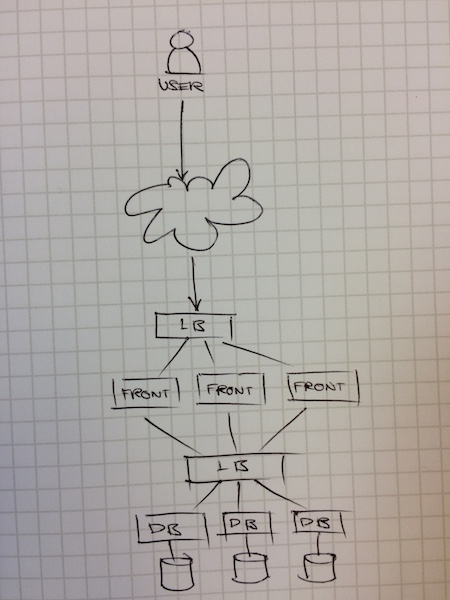 USER
LB
FRONT FRONT FRONT
LB
DB DB DB